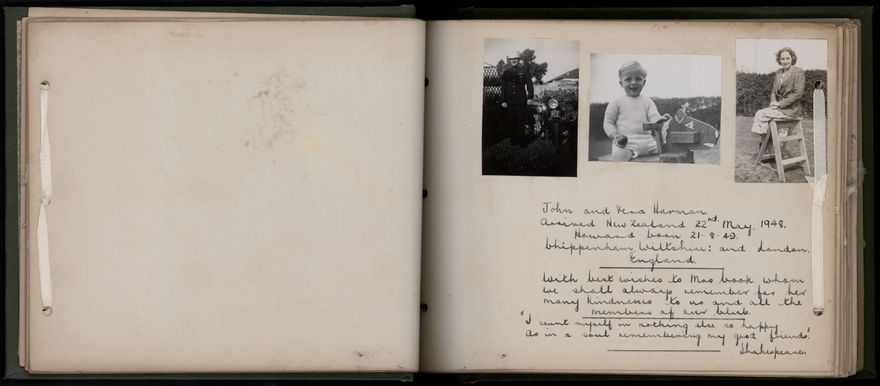 John and Vera Harman.
Arrived New Zealand 22nd May, 1948.
Howard born 21-8-49.
Chippenham, Wiltshire: and London,
England.
With best wishes to Mrs Cook whom
we shall always remember for her
many kindnesses to us and all the
members of our club.
"I count myself in nothing else so happy
As in a soul remembering my good friends."
Shakespeare.